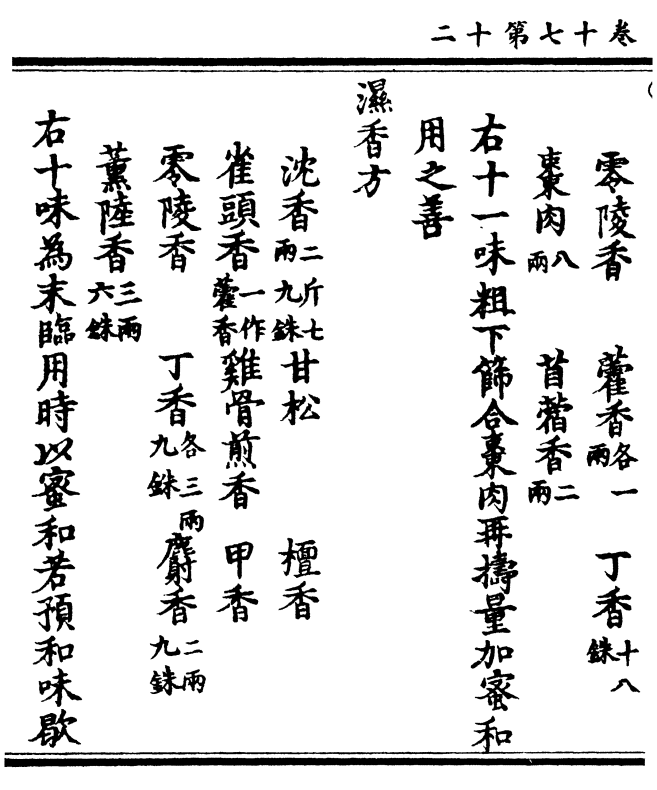 卷十七第十二
零陵香　藿香各一兩　丁香十八銖
棗肉八兩　苜蓿香二兩
右十一味粗下篩合棗肉再擣量加蜜和
用之善
濕香方
沈香二斤七兩九銖　甘松　檀香
雀頭香一作藿香　雞骨煎香　甲香
零陵香　丁香各三兩九銖　麝香二兩九銖
薰陸香三兩六銖
右十味為末臨用時以蜜和若預和味歇